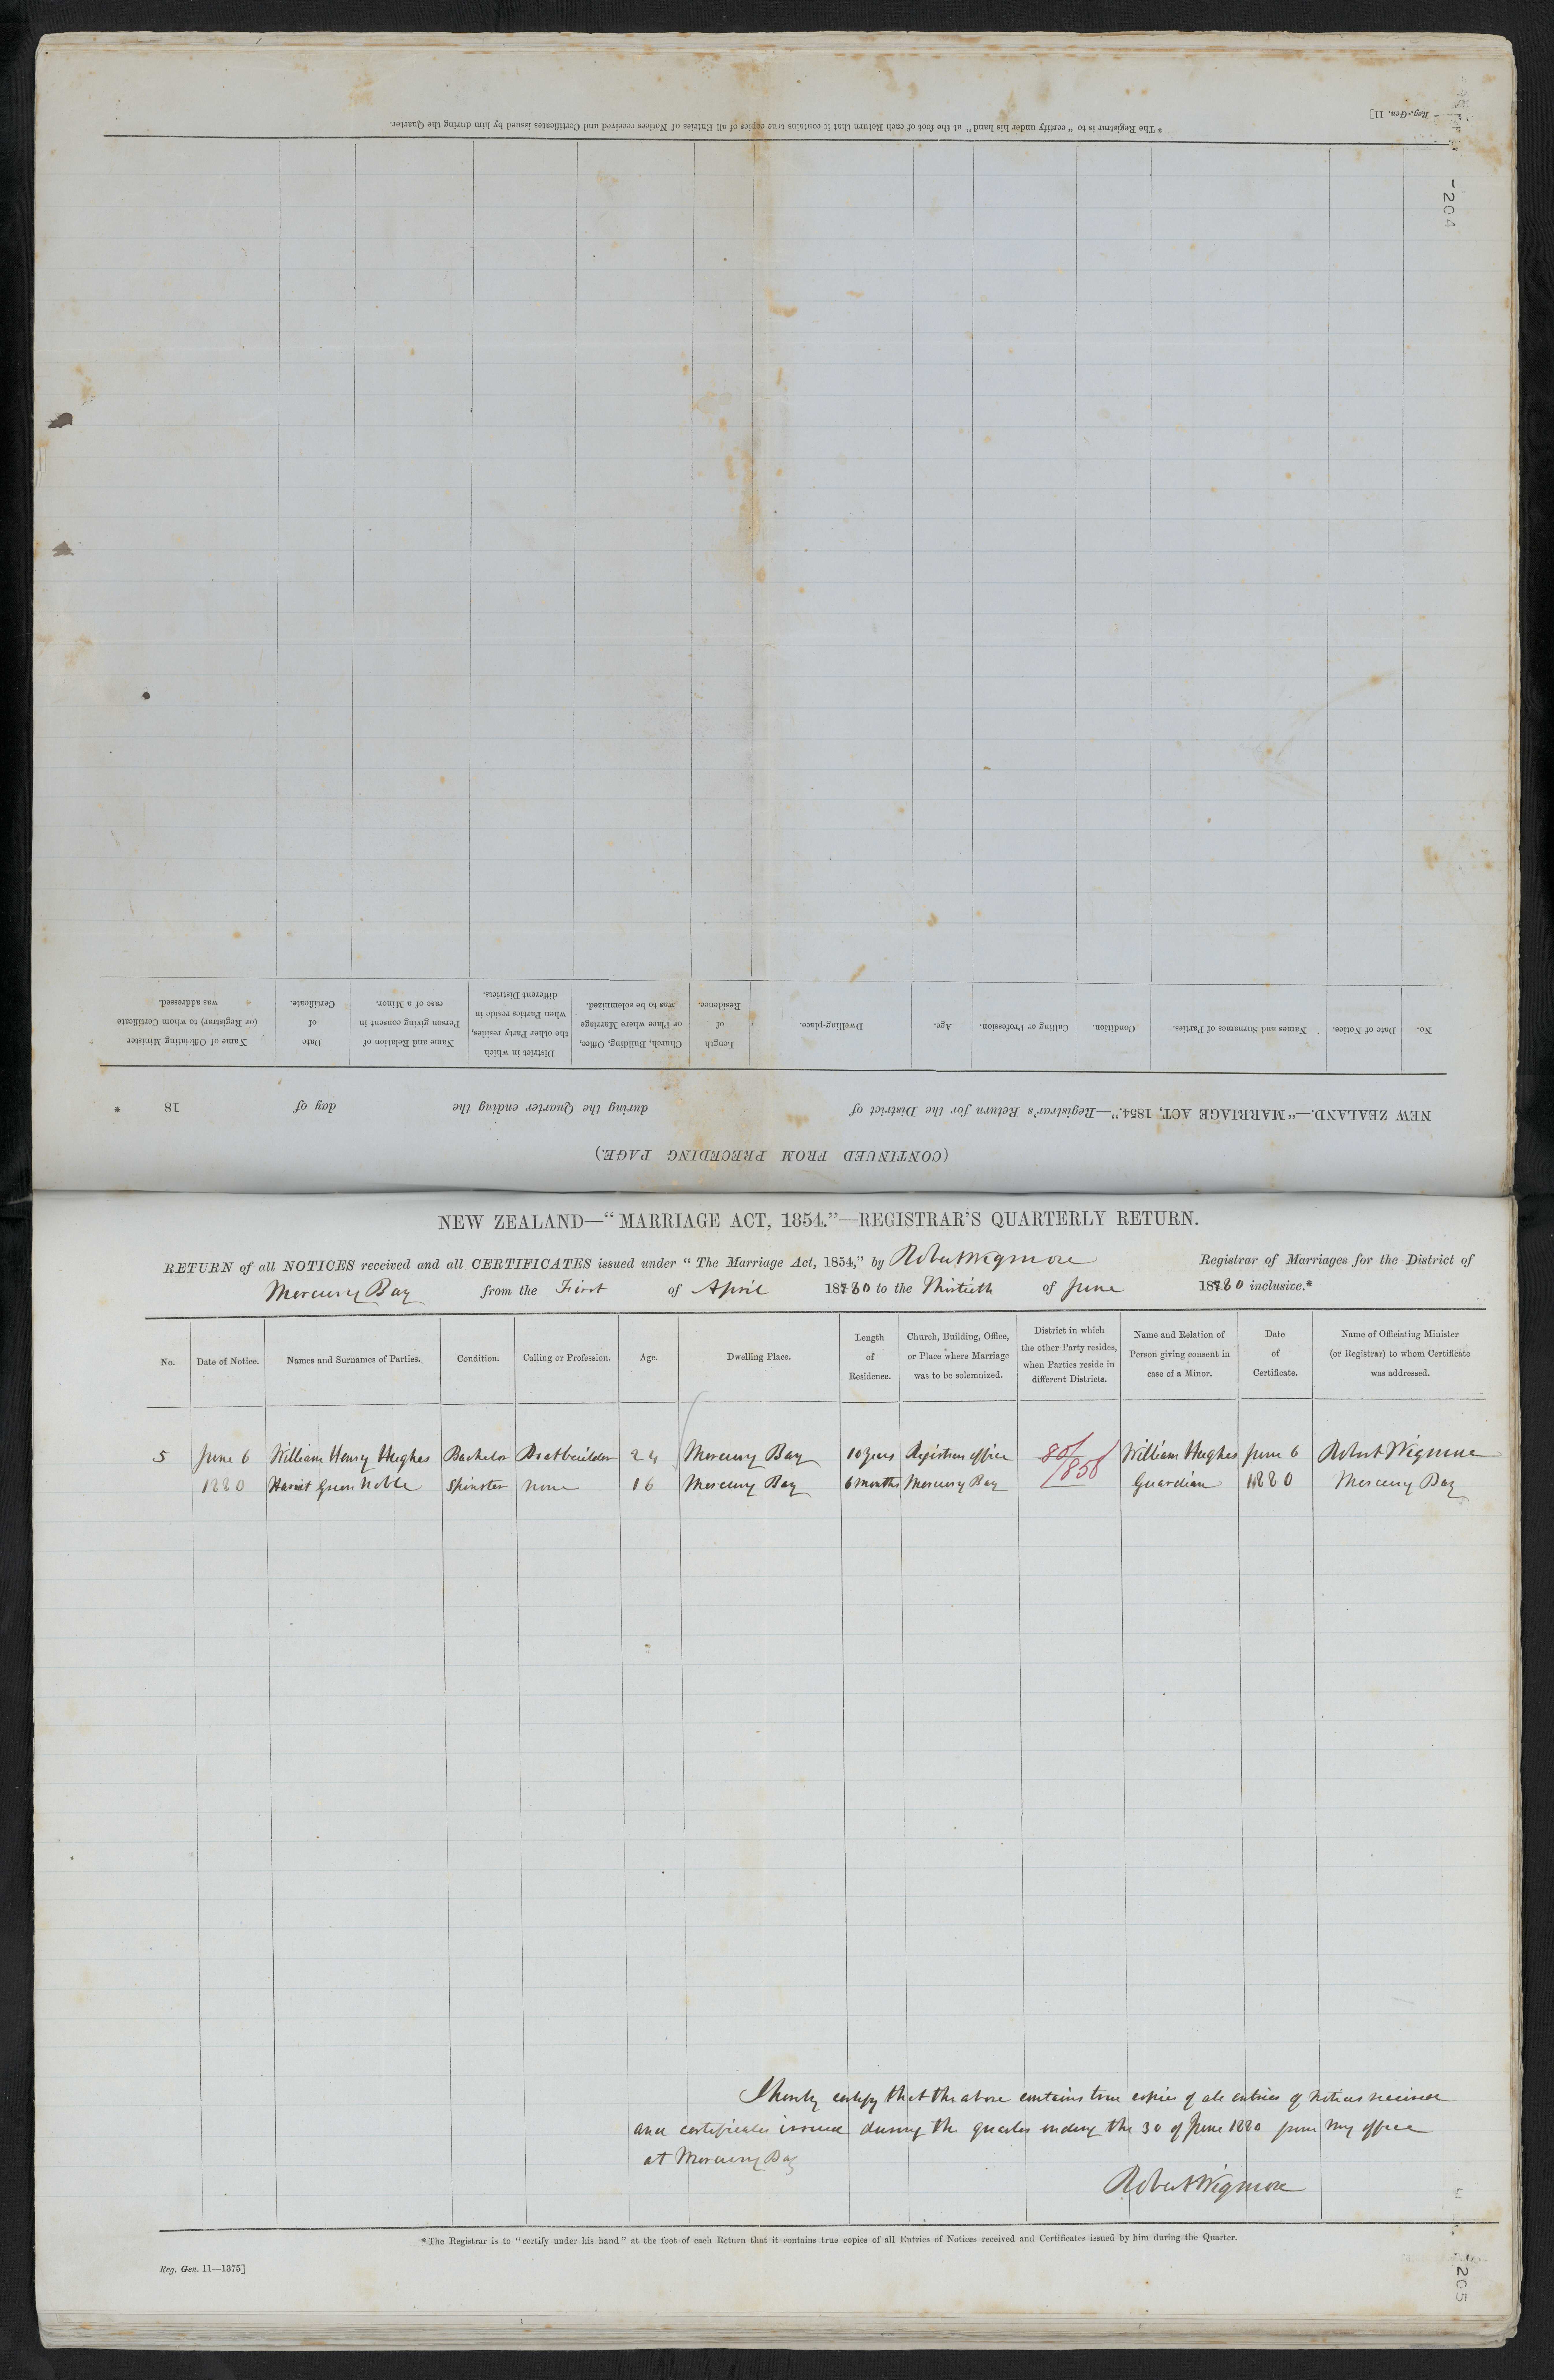 * The Registrar is to "certify under his hand" at the foot of each Return that it contains true copies of all Entries of Notices received and Certificates issued by him during the Quarter.
Reg.-Gen. 11]
204
(CONTINUED FROM PRECEDING PAGE.)
NEW ZEALAND.—"MARRIAGE ACT, 1854."—Registrar's Return for the District of during the Quarter ending the day of 18 *
No. Date of Notice. Names and Surnames of Parties. Condition. Calling or Profession. Age. Dwelling-place. Length of Residence. Church, Building, Office, or Place where Marriage was to be solemnized. District in which the other Party resides, when Parties reside in different Districts. Name and Relation of Person giving consent in case of a Minor. Date of Certificate. Name of Officiating Minister (or Registrar) to whom Certificate was addressed.
NEW ZEALAND—"MARRIAGE ACT, 1854."—REGISTRAR'S QUARTERLY RETURN.
RETURN of all NOTICES received and all CERTIFICATES issued under "The Marriage Act, 1854," by Robert Wigmore Registrar of Marriages for the District of
Mercury Bay from the First of April 1880 to the Thirtieth of June 1880 inclusive.*
No. Date of Notice. Names and Surnames of Parties. Condition. Calling or Profession. Age. Dwelling Place. Length of Residence. Church, Building, Office, or Place where Marriage was to be solemnized. District in which the other Party resides, when Parties reside in different Districts. Name and Relation of Person giving consent in case of a Minor. Date of Certificate. Name of Officiating Minister (or Registrar) to whom Certificate was addressed.
5 June 6 William Henry Hughes Bachelor Boatbuilder 24 Mercury Bay 10 years Registrars office 80/ William Hughes June 6 Robert Wigmore
1880 Harriet Green Noble Spinster none 16 Mercury Bay 6 months Mercury Bay /856 Guardian 1880 Mercury Bay
I hereby certify that the above contains true copies of all entries of notices received
and certificates issued during the quarter ending the 30 of June 1880 from my office
at Mercury Bay
Robert Wigmore
* The Registrar is to "certify under his hand" at the foot of each Return that it contains true copies of all Entries of Notices received and Certificates issued by him during the Quarter.
Reg. Gen. 11—1375]
265